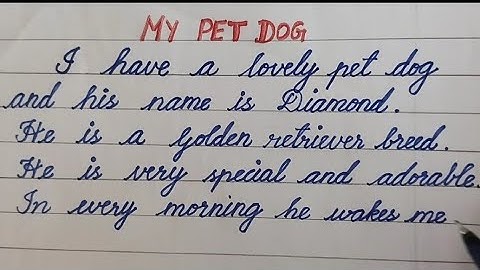 MY PET DOG
I have a lovely pet dog
and his name is Diamond.
He is a golden retriever breed.
He is very special and adorable.
In every morning he wakes me